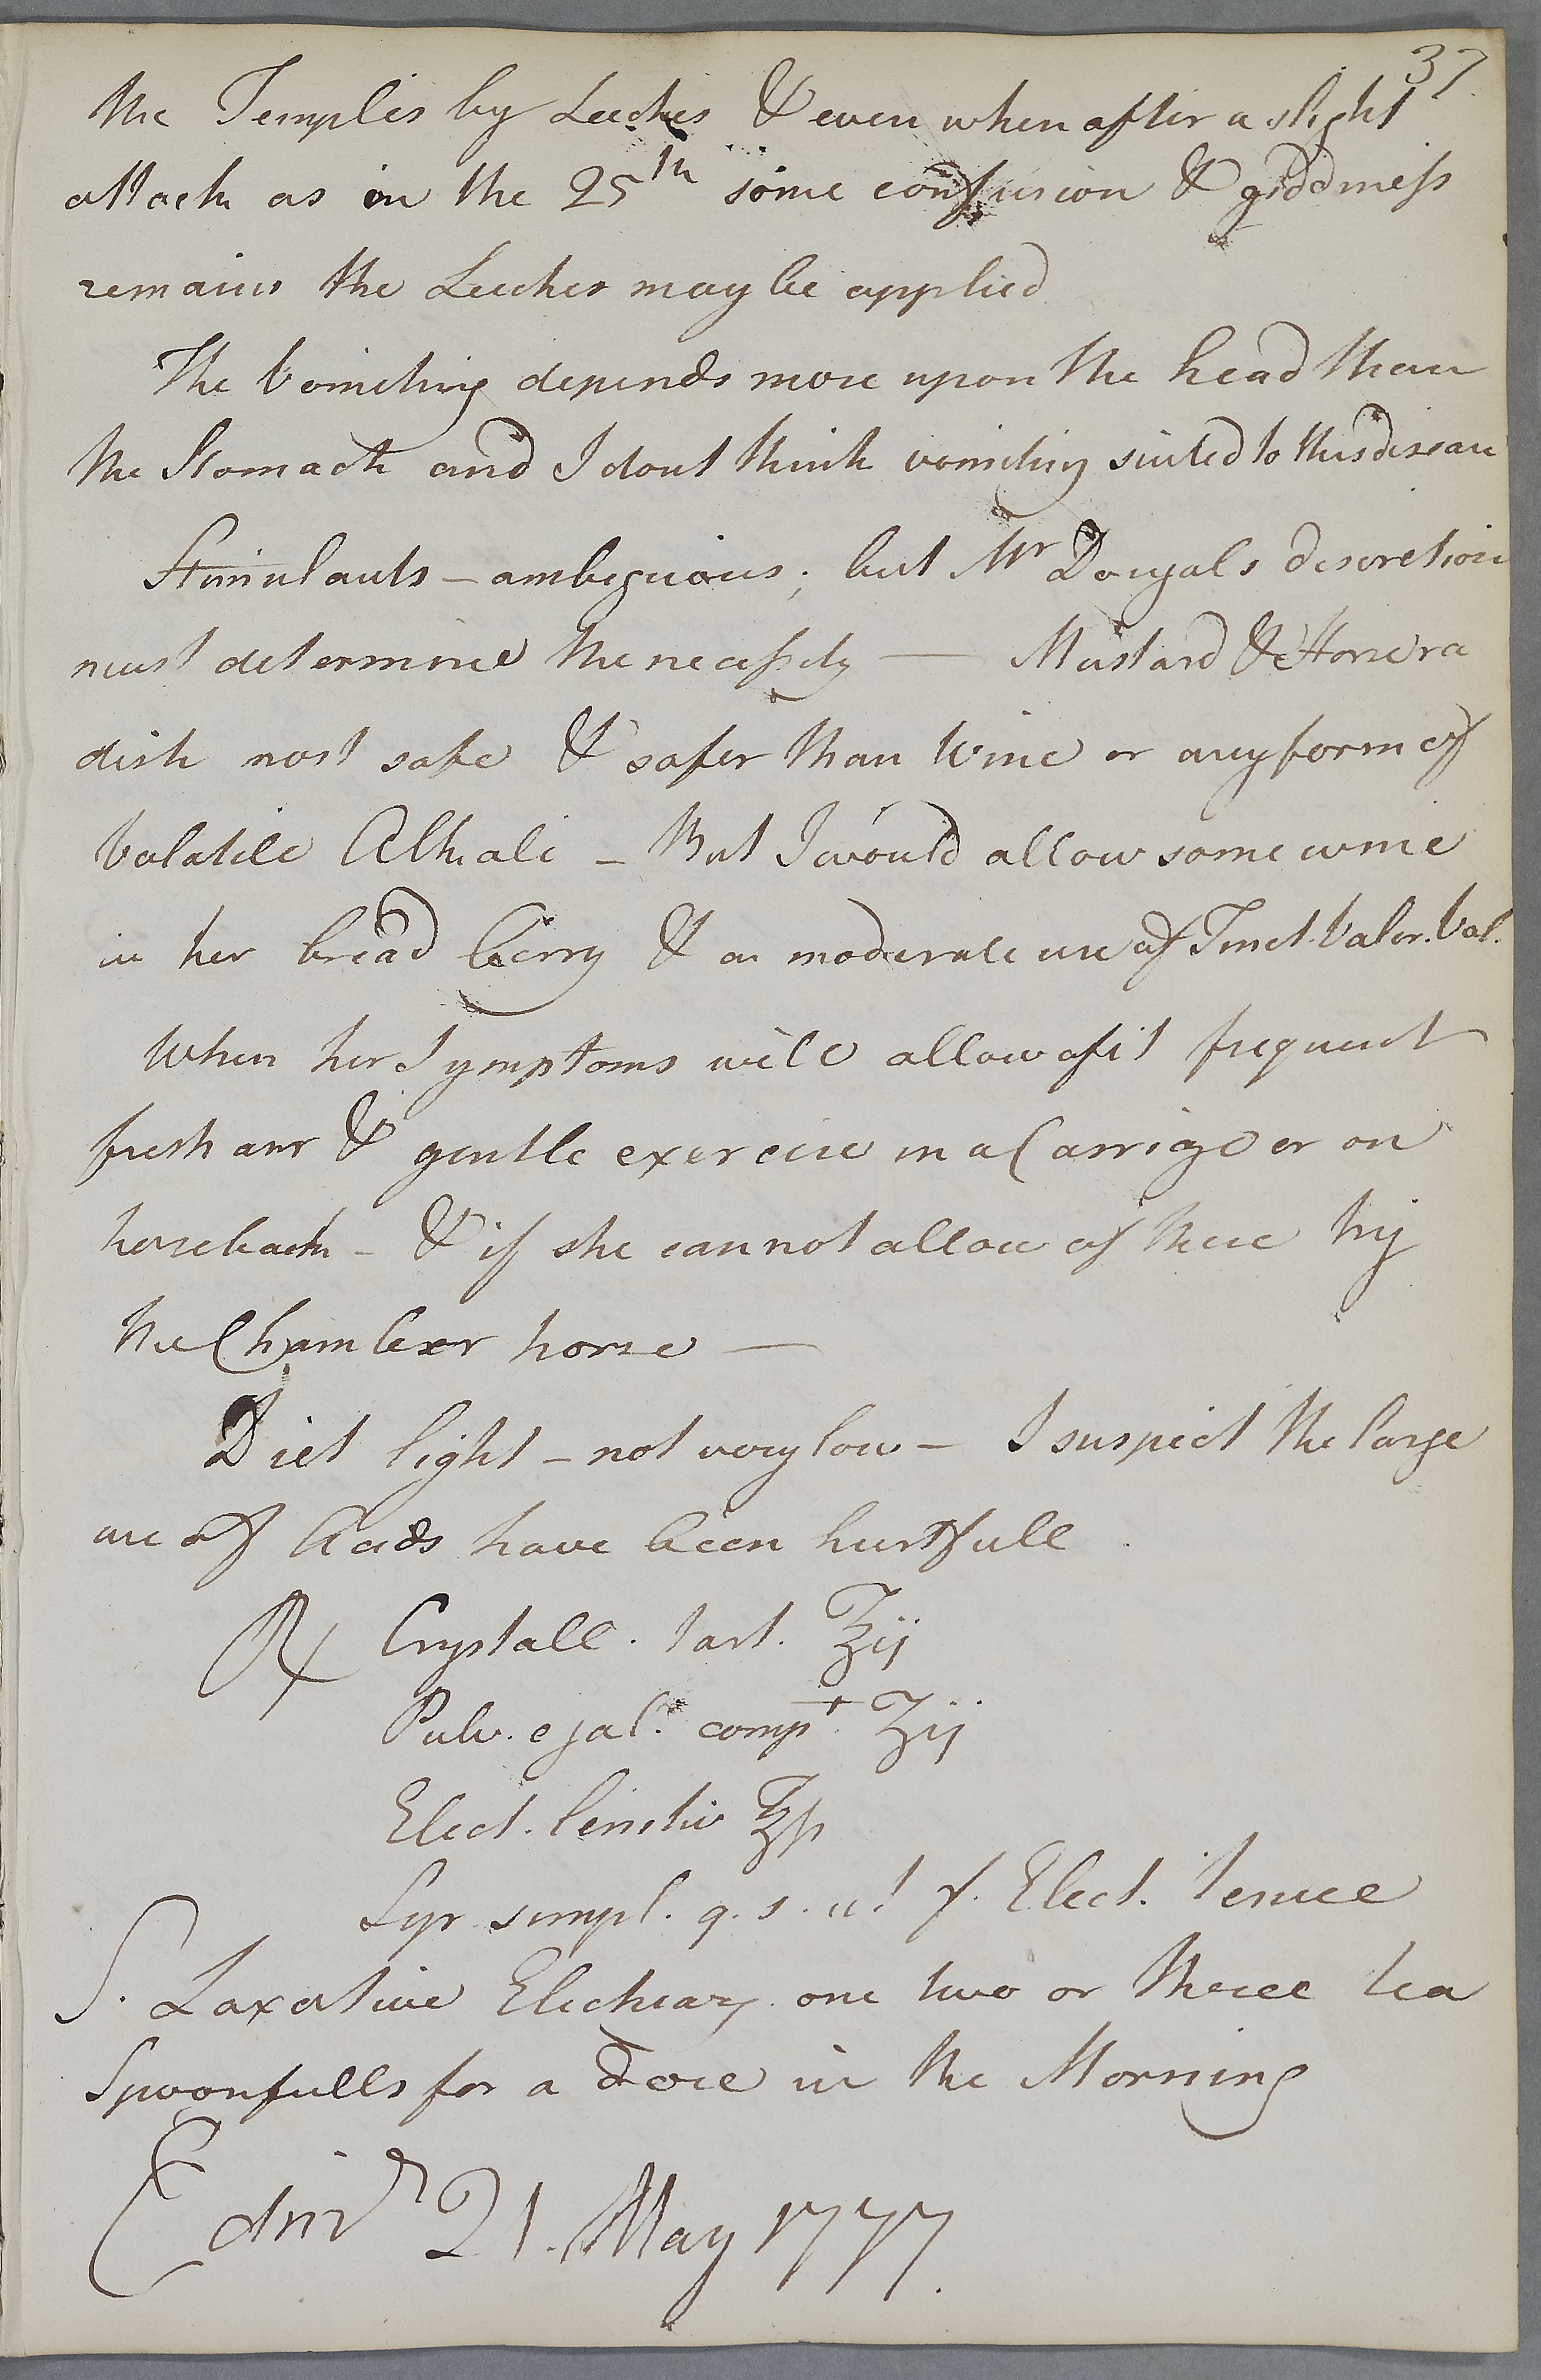 37
the Temples by Leeches & even when after a slight
attack as on the 25th some confusion & giddiness
remains the Leeches may be applied
The Vomiting depends more upon the head than
the Stomach and I dont think vomiting suited to this disease
Stimulants – ambiguious; but Mr Dougals discretion
must determine the necessity — Mustard & Horsera
dish most safe & safer than Wine or any form of
Volatile Alkali – But I would allow some wine
in her bread berry & a moderate use of Tinct. Valer. Vol.
When her Symptoms will allow of it frequent
fresh air & gentle exercise in a Carriage or on
horseback – & if she cannot allow of these try
the Chamber horse —
Diet light – not very low – I suspect the large
use of Acids have been hurtfull
℞ Crystall. tart. ʒij
Pulv. e jal. compt. ʒij
Elect. lenitiv ℥ß
Syr simpl. q. s. ut f. Elect. tenue
S. Laxative Electuary one two or three tea
Spoonfulls for a dose in the Morning
Edinr 21. May 1777.